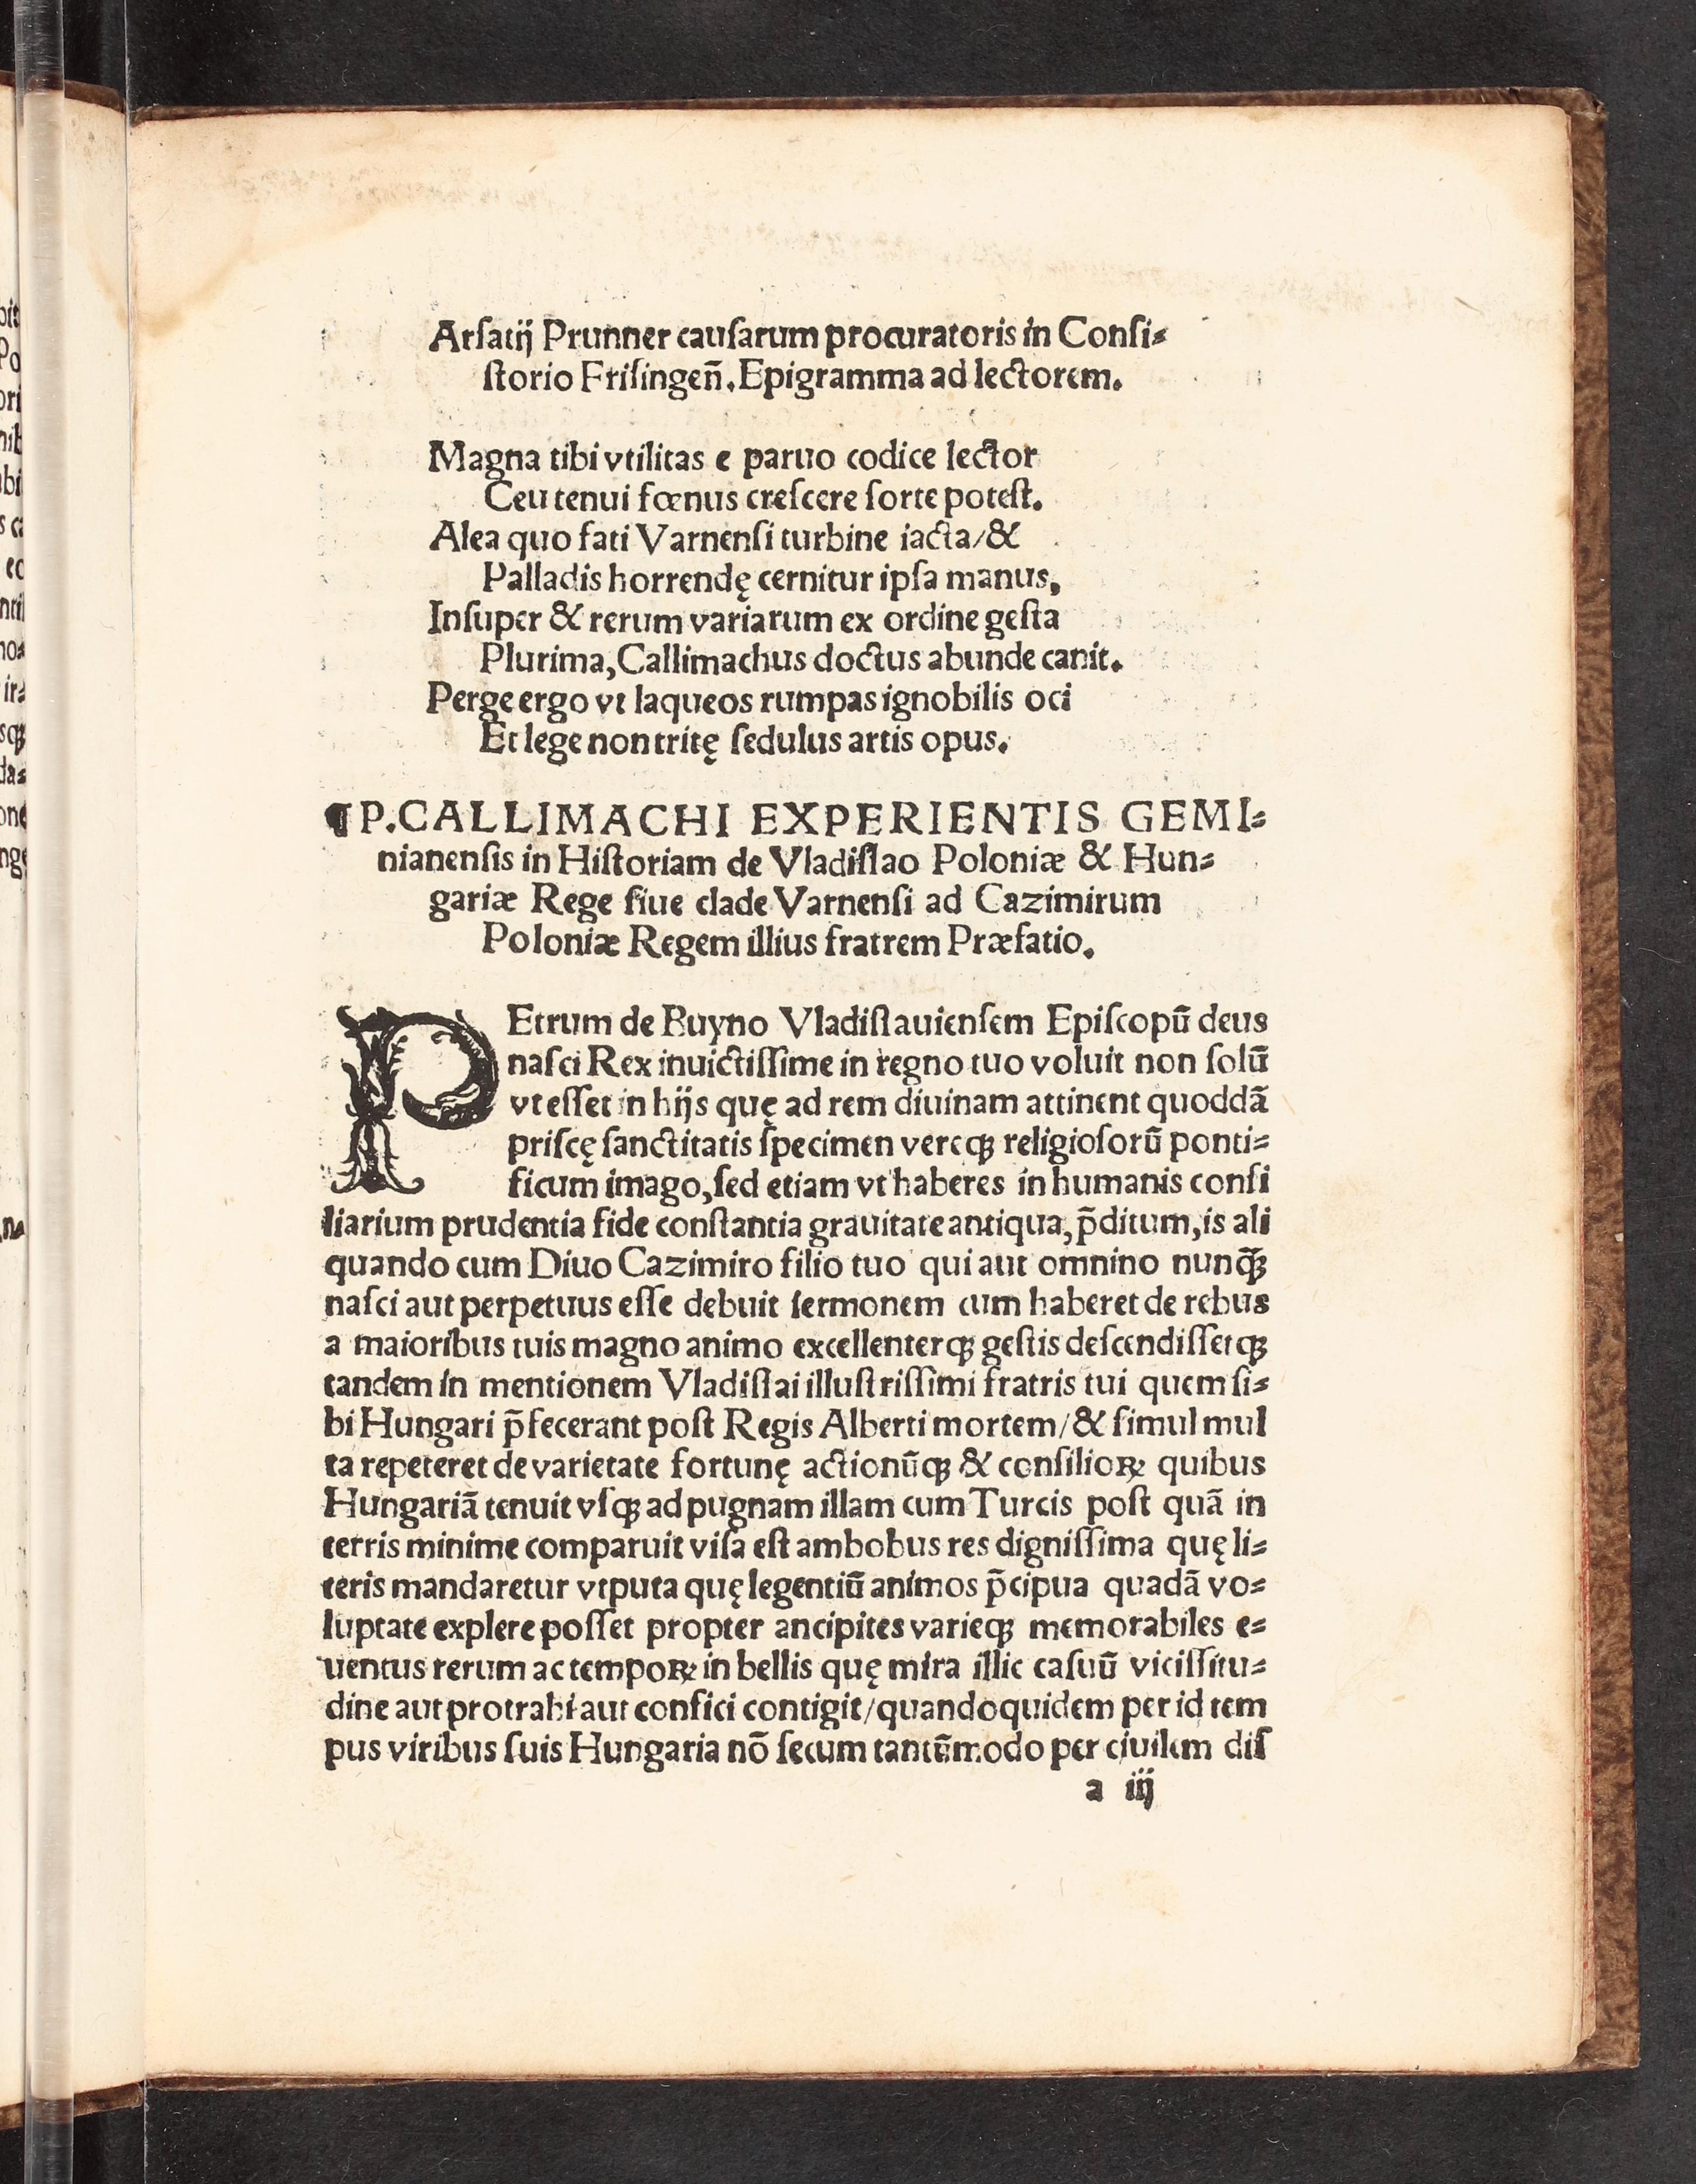 Arſatij Prunner cauſarum procuratoris in Conſi⸗
ſtorio Friſingen̄. Epigramma ad lectorem.
Magna tibi vtilitas e paruo codice lector
Ceu tenui fœnus creſcere ſorte poteſt.
Alea quo fati Varnenſi turbine iacta/&
Palladis horrendę cernitur ipſa manus,
Inſuper & rerum variarum ex ordine geſta
Plurima, Callimachus doctus abunde canit.
Perge ergo vt laqueos rumpas ignobilis oci
Et lege non tritę ſedulus artis opus.
¶P. CALLIMACHI EXPERIENTIS GEMI⸗
nianenſis in Hiſtoriam de Vladiſlao Poloniæ & Hun⸗
gariæ Rege ſiue clade Varnenſi ad Cazimirum
Poloniæ Regem illius fratrem Præfatio.
PEtrum de Buyno Vladiſlauienſem Epiſcopū deus
naſci Rex inuictiſſime in regno tuo voluit non ſolū
vt eſſet in hijs quę ad rem diuinam attinent quoddā
priſcę ſanctitatis ſpecimen veręqꝫ religioſorū ponti⸗
ficum imago, ſed etiam vt haberes in humanis conſi
liarium prudentia fide conſtantia grauitate antiqua, p̄ditum, is ali
quando cum Diuo Cazimiro filio tuo qui aut omnino nunqꝫ̄
naſci aut perpetuus eſſe debuit ſermonem cum haberet de rebus
a maioribus tuis magno animo excellenterqꝫ geſtis deſcendiſſetqꝫ
tandem in mentionem Vladiſlai illuſtriſſimi fratris tui quem ſi⸗
bi Hungari p̄fecerant poſt Regis Alberti mortem/& ſimul mul
ta repeteret de varietate fortunę actionūqꝫ & conſilioꝝ quibus
Hungariā tenuit vſqꝫ ad pugnam illam cum Turcis poſt quā in
terris minime comparuit viſa eſt ambobus res digniſſima quę li⸗
teris mandaretur vtputa quę legentiū animos p̄cipua quadā vo⸗
luptate explere poſſet propter ancipites varieqꝫ memorabiles e⸗
uentus rerum ac tempoꝝ in bellis quę mira illic caſuū viciſſitu⸗
dine aut protrahi aut confici contigit/quandoquidem per id tem
pus viribus ſuis Hungaria nō ſecum tantūmodo per ciuilem diſ
a iij